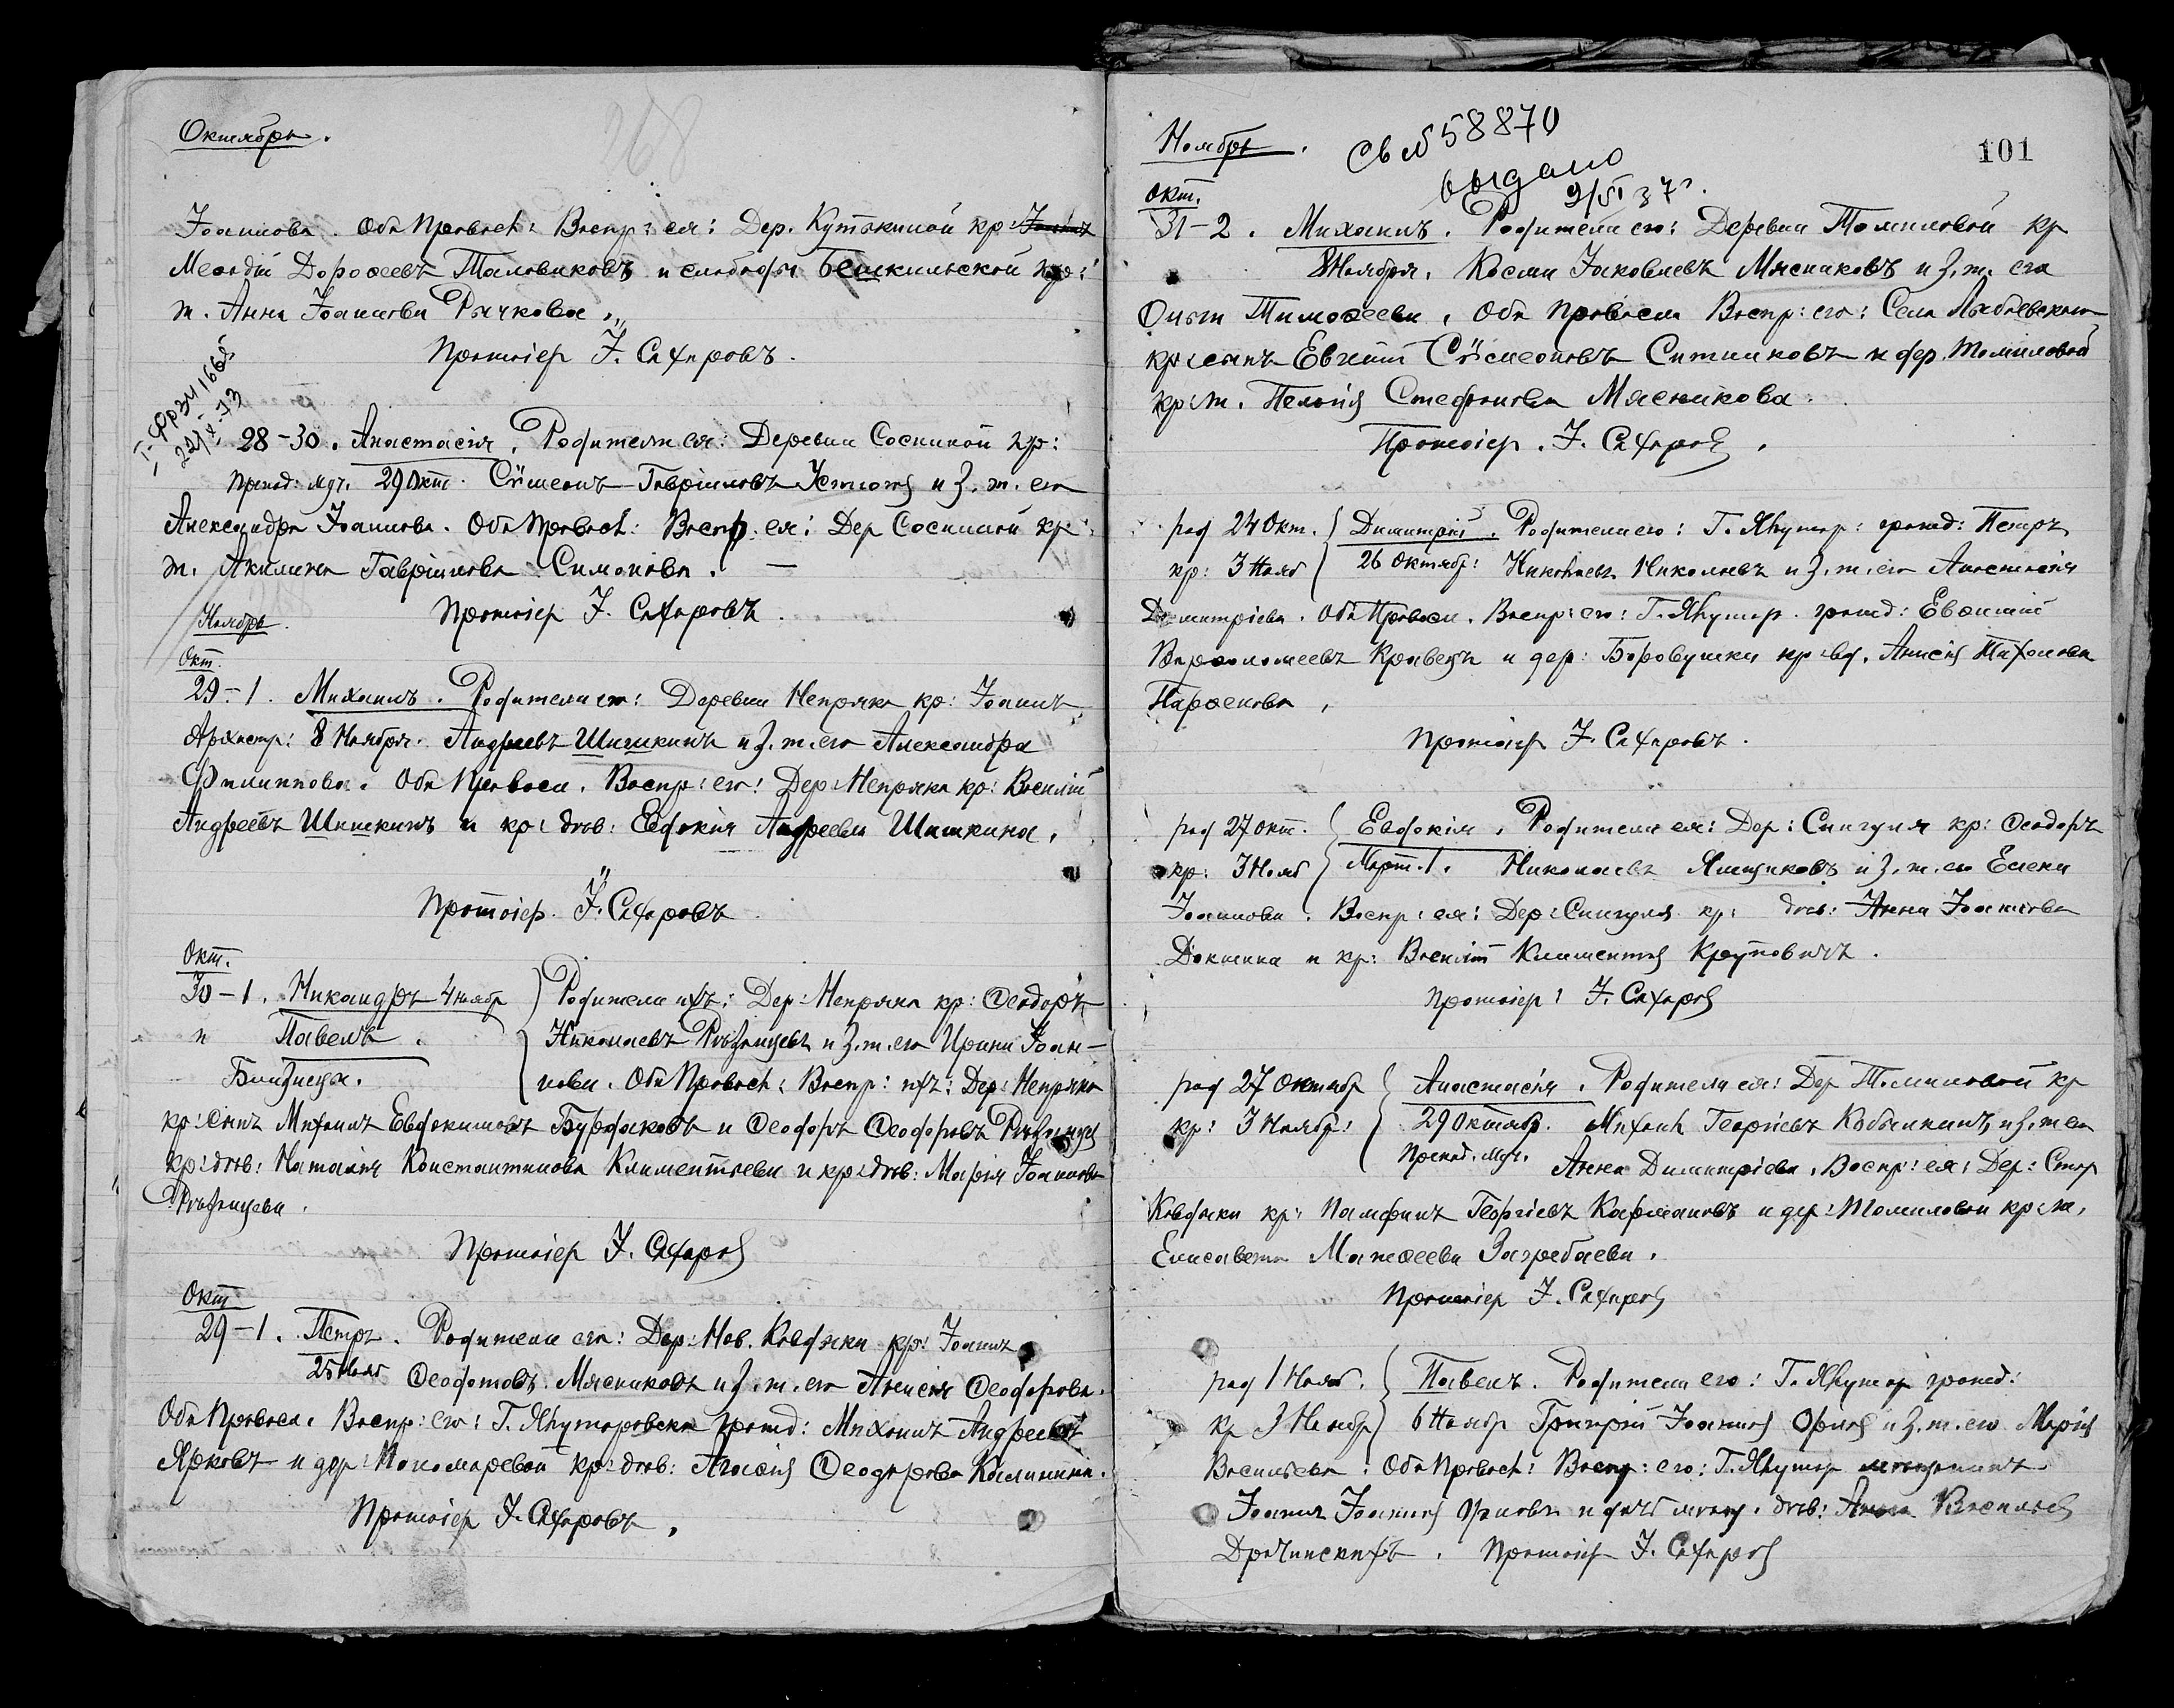 Октябрь.
Іоаннова. Оба Правосл: Воспр: ея: Дер. Кутькиной кр:
Меѳодій Дороѳеевъ Таловиковъ и слободы Бешкильской кр:
ж. Анна Іоаннова Рычкова.
Протоіер. І. Сахаровъ.
28-30. Анастасія. Родители ея: Деревни Сосниной кр:
препод: муч. 29 Окт. Сѵмеонъ Гавріиловъ и з. ж. его
Александра Іоаннова. Оба Правосл: Воспр. ея: Дер Сосниной кр:
ж. Акилина Гавріилова Симонова.
Протоіер І. Сахаровъ.
Ноябрь.
Окт.
29-1. Михаилъ. Родители его: Деревни Непряха кр: Іоаннъ
Архистр: 8 Ноября. Андреевъ Шишкинъ и з. ж. его Александра
Филиппова. Оба Правосл. Воспр: его: Дер: Непряха кр: Василій
Андреевъ Шишкинъ и кр: дѣв: Евдокія Андреева Шишкина.
Протоіер. І. Сахаровъ
Окт.
30-1. Никандръ 4 ноябр Родители ихъ: Дер: Непряха кр: Ѳеодоръ
и Павелъ. Николаевъ и з. ж. его Ирина Іоан-
Близнецы. нова. Оба Правосл: Воспр: ихъ: Дер: Непряха
кр: сынъ Михаилъ Евдокимовъ Бурдаковъ и Ѳеодоръ Ѳеодоровъ
кр: дѣв: Наталія Константинова Климентьева и кр: дѣв: Марія Іоаннова
Протоіер І. Сахаров
Окт
29-1. Петръ. Родители его: Дер: Нов. Кавдыка кр: Іоаннъ
25 Нояб Ѳеодотовъ Мясниковъ и з. ж. его Анисія Ѳеодорова.
Оба Правосл. Воспр: его: Г. Ялуторовска гражд: Михаилъ Андреевъ
Ярковъ и дер: Пономаревой кр: дѣв: Ѳеодорова Калинина.
Протоіер І. Сахаровъ.
Ноябрь.
Св № 58870
выдано
9/VI 37 г.
101
Окт.
31-2. Михаилъ. Родители его: Деревни Томиловой кр
8 Ноября. Косма Іаковлевъ Мясниковъ и з. ж. его
Ольга Тимоѳеева. Оба Правосл Воспр: его: Села
кр: сынъ Евгеній Сѵмеоновъ Ситниковъ и дер. Томиловой
кр: ж. Пелагія Стефанова Мясникова.
Протоіер. І. Сахаров.
род 24 Окт. Димитрій. Родители его: Г. Ялутор: гражд: Петръ
кр: 3 Нояб 26 Октябр: Николаевъ и з. ж. его Анастасія
Димитріева. Оба Правосл. Воспр: его: Г. Ялутор. гражд: Евѳимій
Варѳоломеевъ Кравецъ и дер: Боровушки кр: вд. Анисія Тихонова
Парѳенова.
Протоіер І. Сахаровъ.
род 27 окт. Евдокія. Родители ея: Дер: Сингуля кр: Ѳеодоръ
кр: 3 Нояб Март. 1. Николаевъ Ямщиковъ и з. ж. его Елена
Іоаннова. Воспр: ея: Дер: Сингуля кр: дѣв: Анна Іоаннова
Докшина и кр: Василій Климентов Круповичъ.
Протоіер: І. Сахаров
род 27 Октябр Анастасія. Родители ея: Дер Томиловой кр
кр: 3 Ноябр: 29 Октябр. Михаилъ Георгіевъ Кобылкинъ и з. ж его
препод. муч. Анна Димитріева. Воспр: ея: Дер: Стар
Кавдыка кр: Памфилъ Георгіевъ и дер: Томиловой кр: ж.
Елисавета Матѳеева Загребаева.
Протоіер І. Сахаров
род 1 Нояб. Павелъ. Родители его: Г. Ялутор гражд:
кр 3 Ноябр 6 Ноябр Григорій Іоаннов и з. ж. его Марія
Васильева. Оба Правосл: Воспр: его: Г. Ялутор мѣщанинъ
Іоаннъ Іоаннов и дочь мѣщ. дѣв: Анна Васильев
Протоіер І. Сахаров